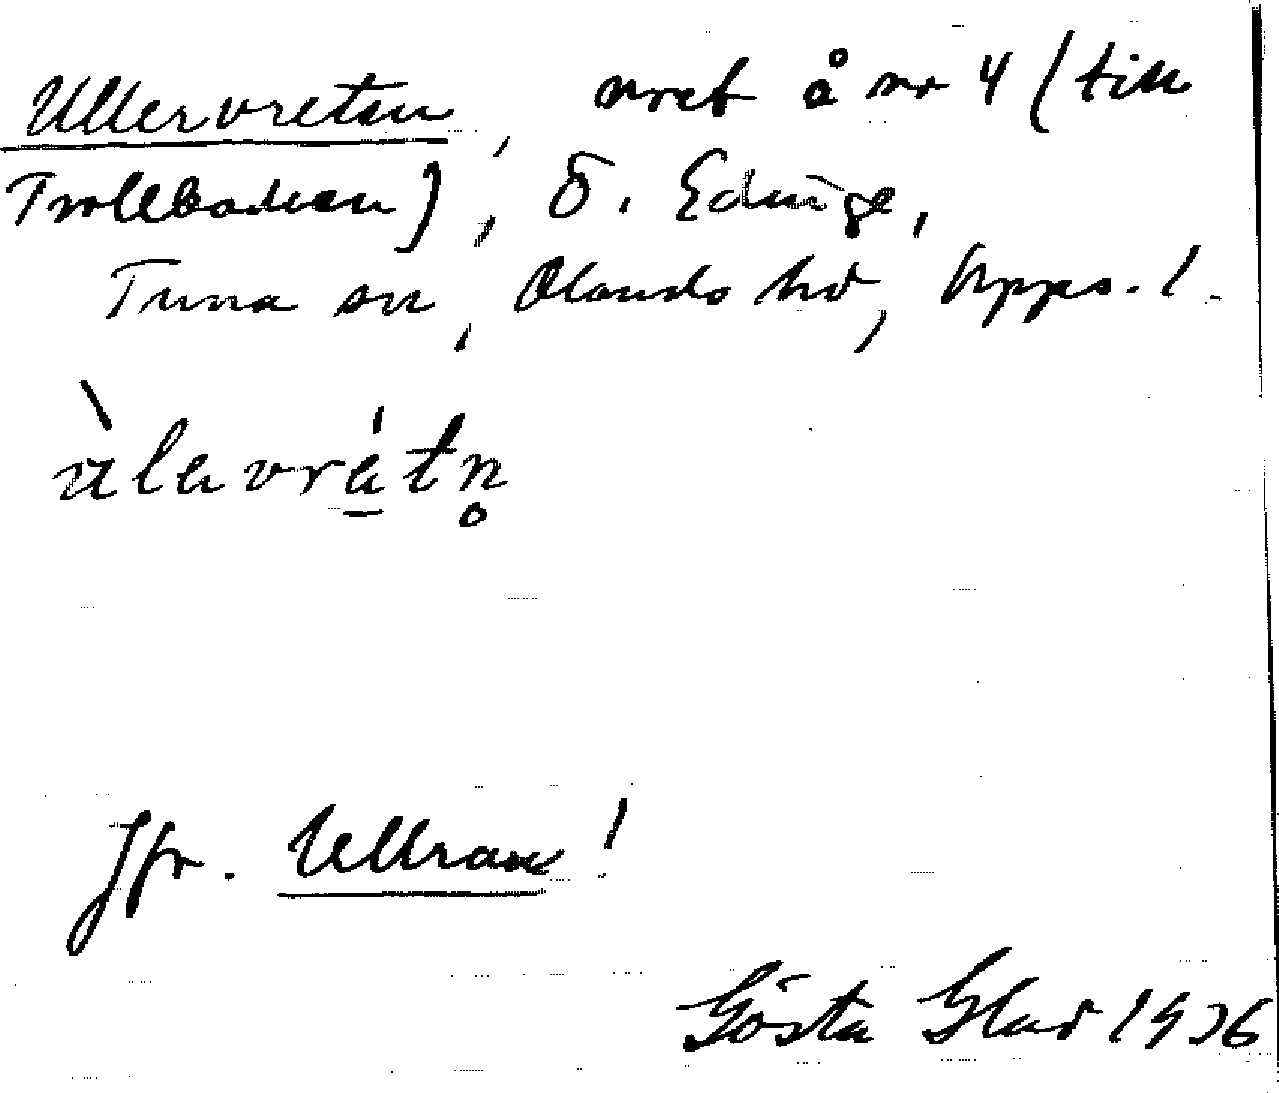 Ullervreten, vret å nr 4 (till
Trollbacken), Ö. Edinge,
Tuna sn, Olands hd, Upps. l.
ùlavrétn̥
Jfr. Ullran!
Gösta Glad 1936